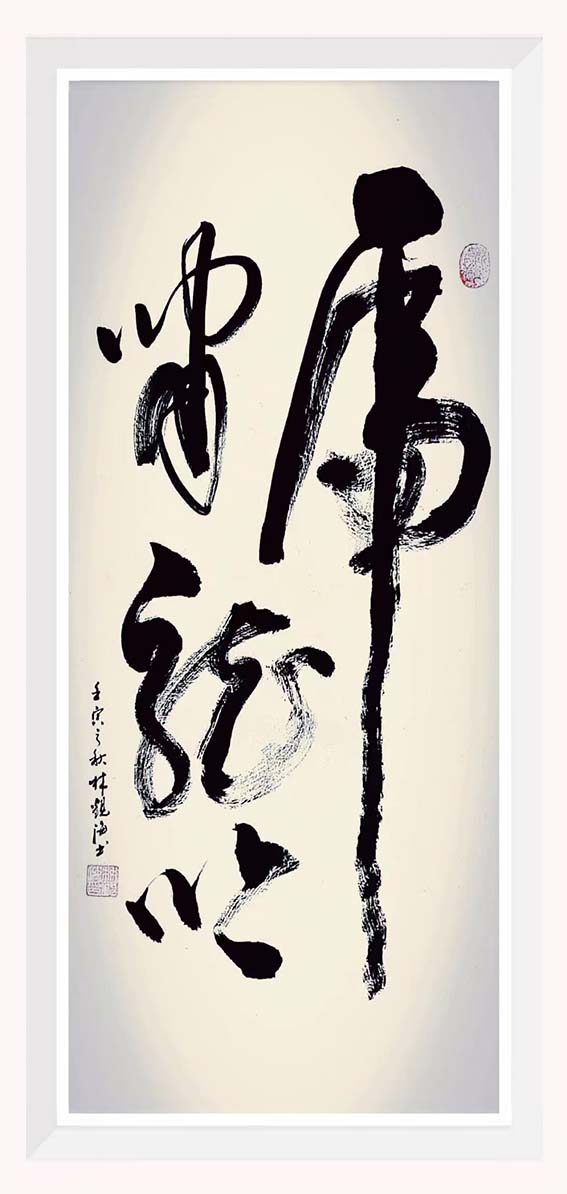 虎
啸龙吟
壬寅之秋林观海书